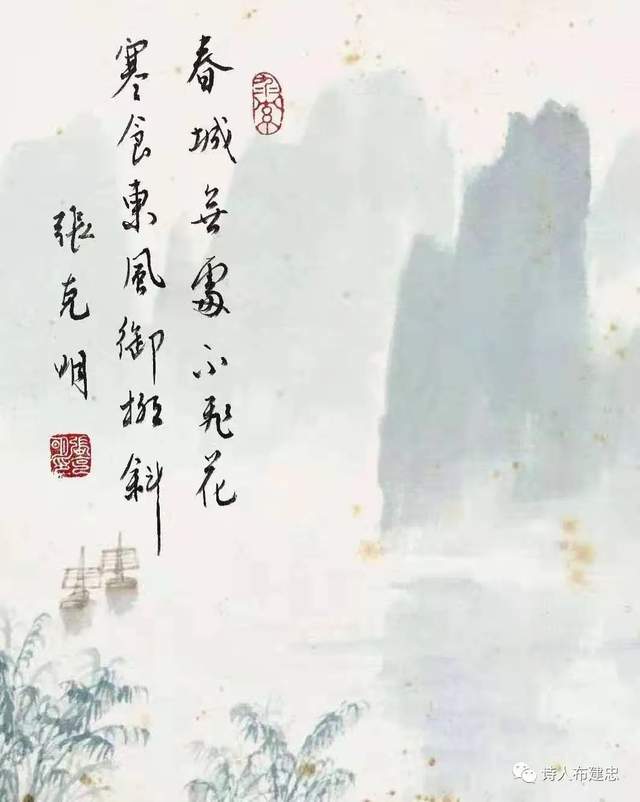 春城無處不飛花
寒食東風御柳斜
張克明
诗人布建忠